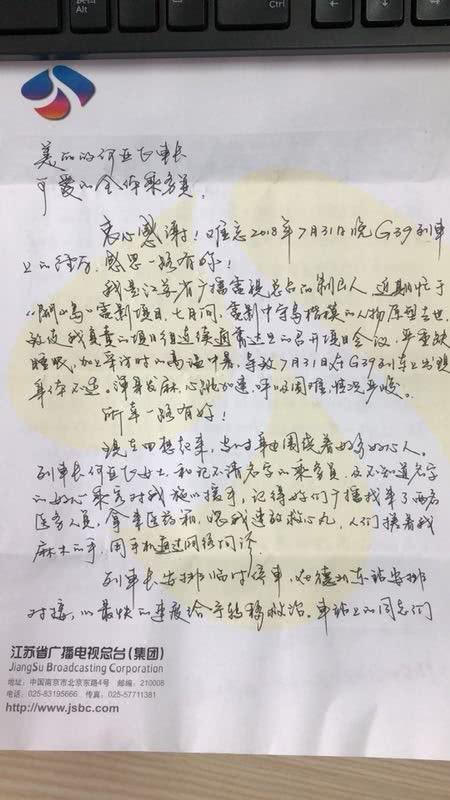 Alt
Ctrl
美丽的何亚飞车长
可爱的全体乘务员,
衷心感谢!难忘2018年7月31日晚G39列车
上的经历,感恩一路有你!
我是江苏省广播电视总台的制片人 近期忙于
“开山岛”电影项目,七月间,电影中守岛楷模的人物原型去世,
致使我负责的项目组连续通宵达旦的召开项目会议,严重缺
睡眠,加上采访时的高温中暑,导致7月31日在G39列车上出现
身体不适。浑身发麻,心跳加速,呼吸困难,情况严峻。
所幸一路有好!
现在回想起来,当时身边围绕着好多好心人。
列车长何亚飞女士,和记不清名字的乘务员,及不知道名字
的好心乘客对我施以援手,记得好们广播找来了两名
医务人员,拿来医药箱,喂我速效救心丸,人们搓着我
麻木的手,用手机通过网络问诊。
列车长安排临时停车,在德州东站安排
对接,以最快的速度给予转移救治。车站上的同志们
江苏省广播电视总台(集团)
JiangSu Broadcasting Corporation
地址:中国南京市北京东路4号 邮编:210008
电话:025-83195666 传真:025-57711381
http://www.jsbc.com